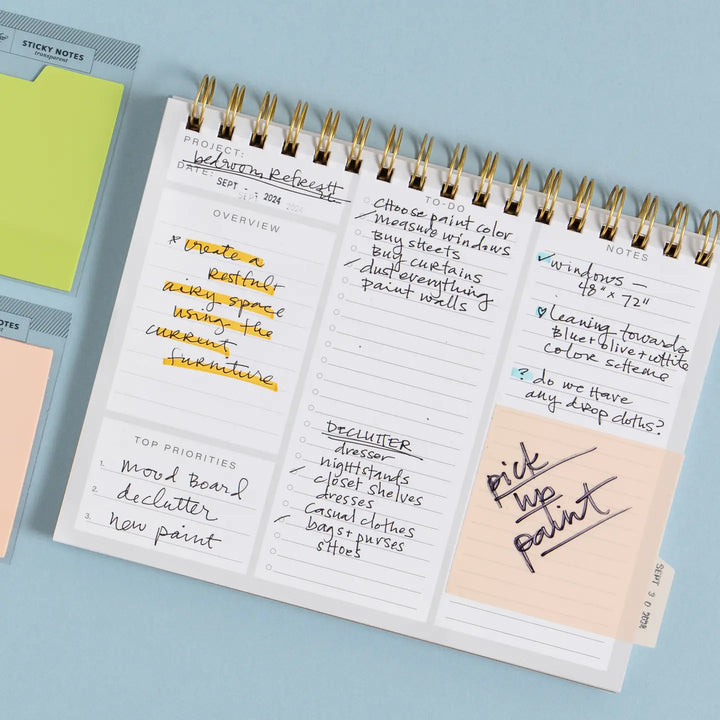 STICKY NOTES
transparent
NOTES
PROJECT:
bedroom Refresh
DATE:
SEPT - - 2024
SEPT 2024
OVERVIEW
* create a
Restful +
airy space
using the
current
furniture
TOP PRIORITIES
1. mood board
2. declutter
3. new paint
TO-DO
Choose paint color
measure windows
Buy sheets
Buy curtains
dust everything
paint walls
DECLUTTER
dresser
nightstands
closet shelves
dresses
casual clothes
bags + purses
shoes
NOTES
✓ windows —
48" x 72"
♡ leaning towards
Blue + olive + white
color scheme
? do we have
any drop cloths?
pick
up
paint
SEPT 30